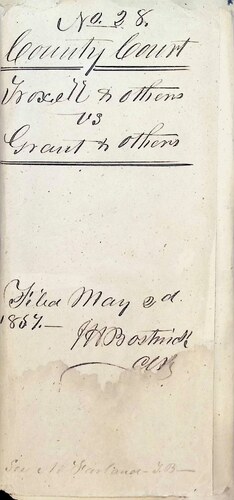 No. 28.
County Court
Troxell & others
vs
Grant & others
Filed May 2d.
1857.—
J H Bostwick
Clk